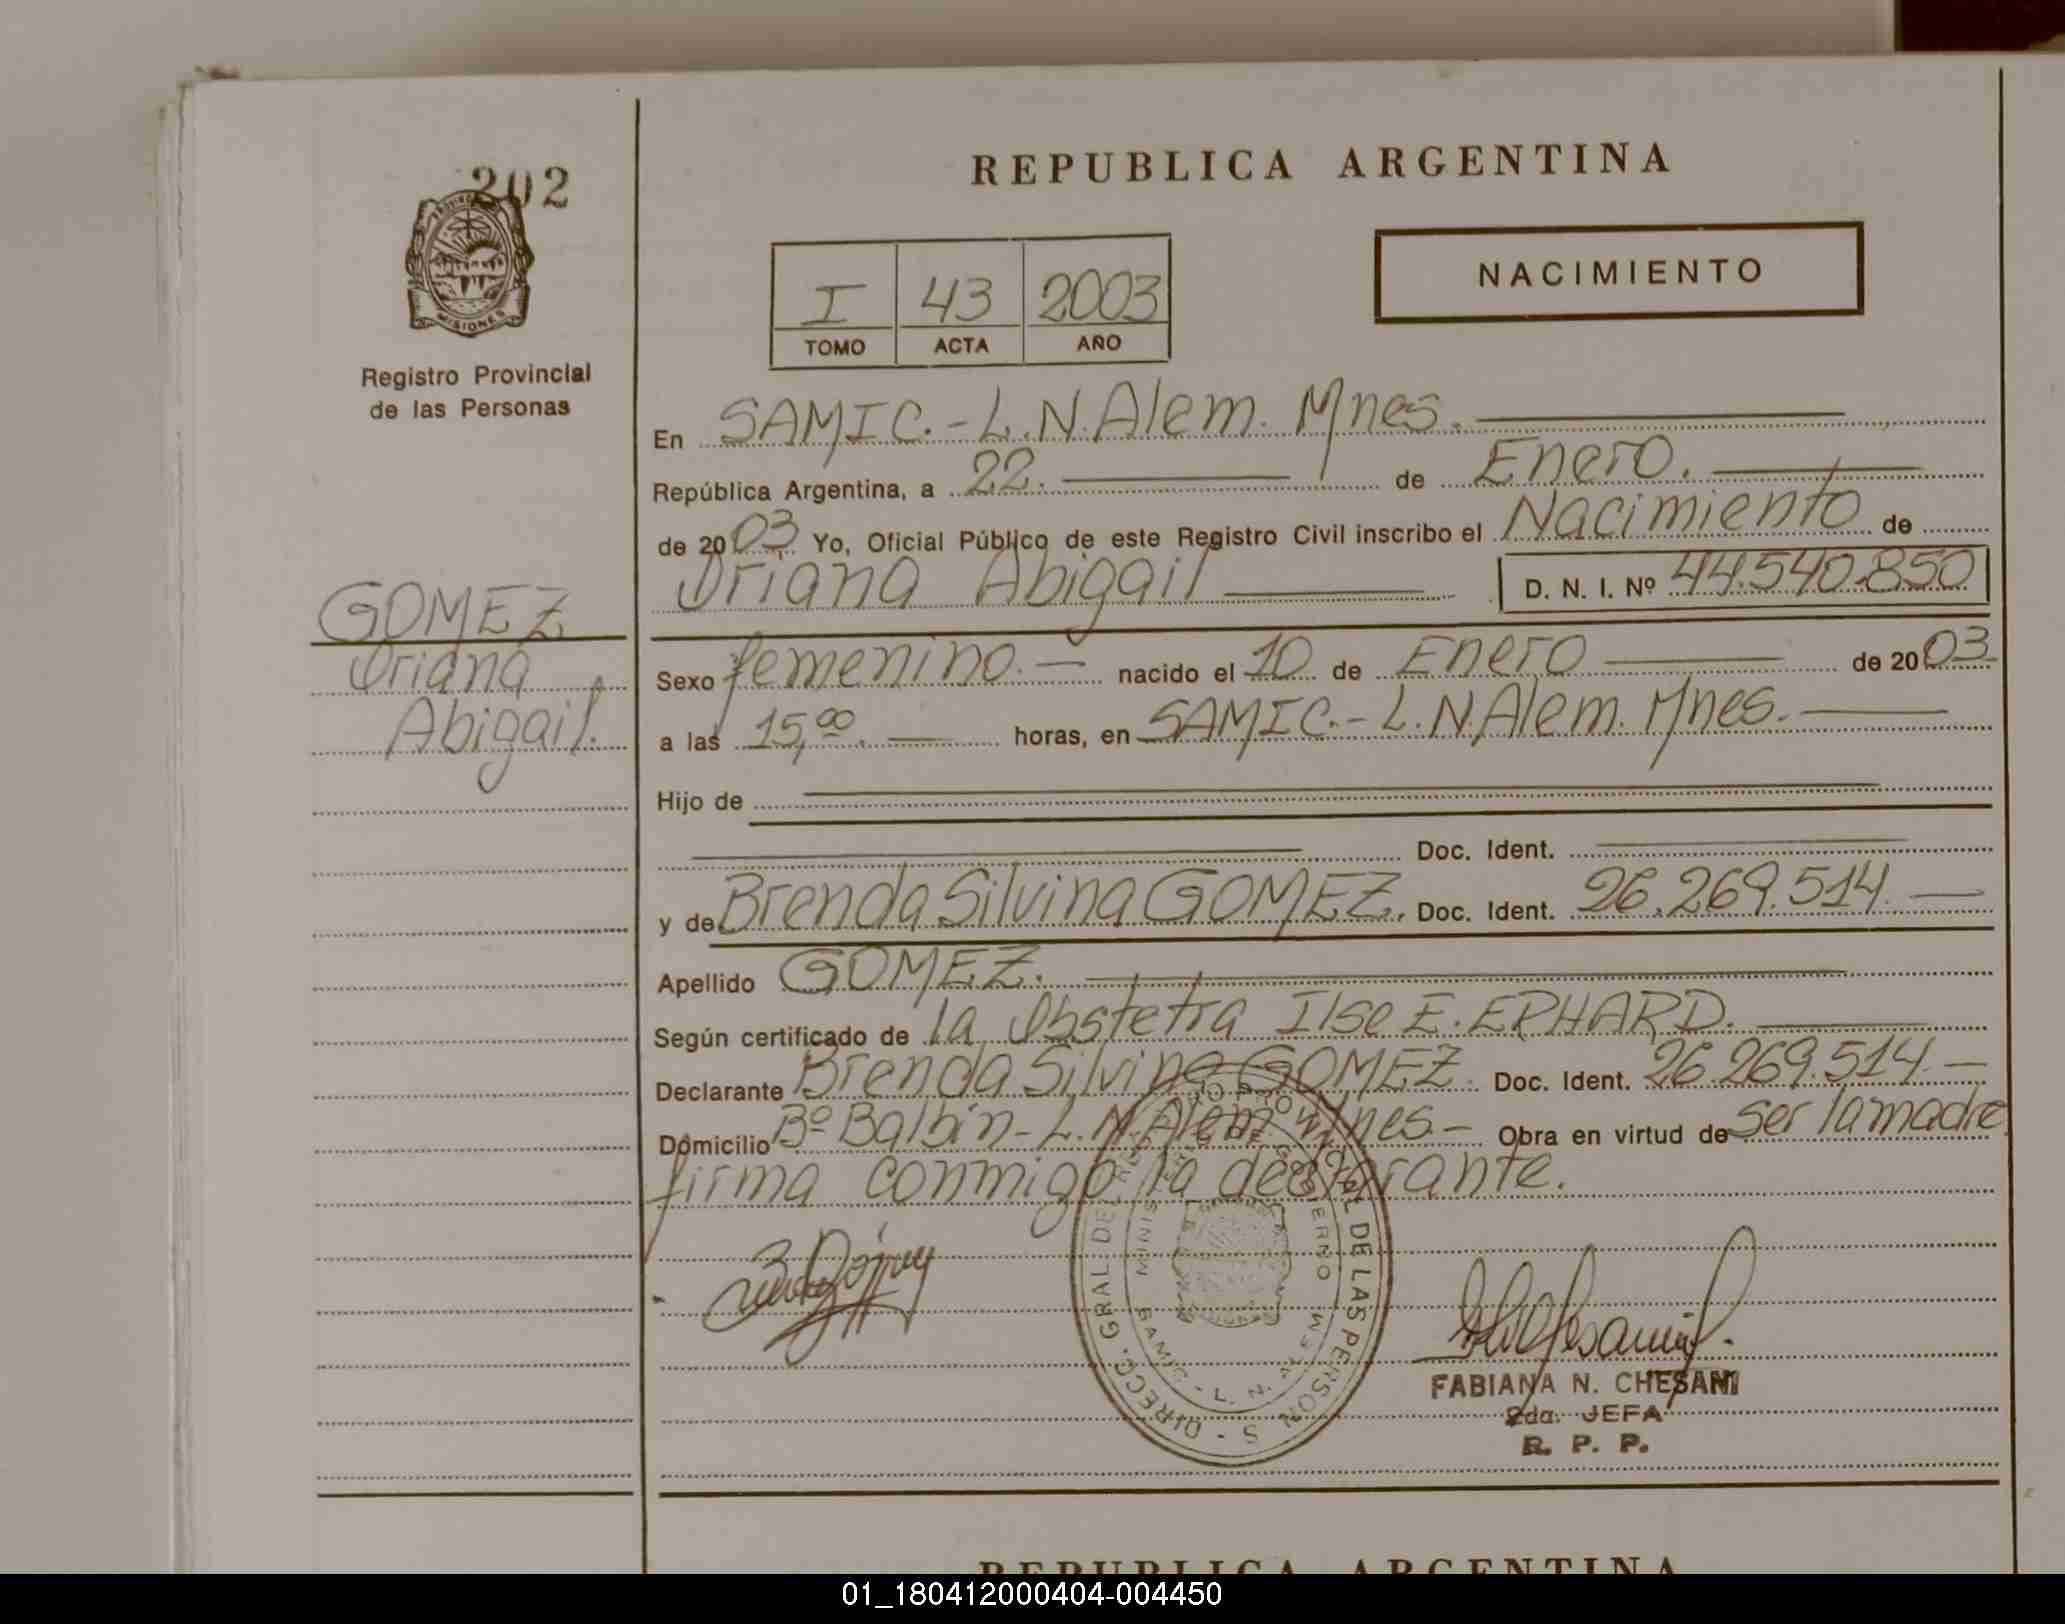 202
PROVINCIA
MISIONES
Registro Provincial
de las Personas
GOMEZ
Oriana
Abigail.
REPUBLICA ARGENTINA
I 43 2003
TOMO ACTA AÑO
NACIMIENTO
En SAMIC.-L.N.Alem. Mnes.
República Argentina, a 22. de Enero.
de 2003 Yo, Oficial Público de este Registro Civil inscribo el Nacimiento de
Oriana Abigail D. N. I. Nº 44.540.850
Sexo femenino.- nacido el 10 de Enero de 2003
a las 15,00. horas, en SAMIC.-L.N.Alem. Mnes.
Hijo de
Doc. Ident.
y de Brenda Silvina GOMEZ. Doc. Ident. 26.269.514.
Apellido GOMEZ.
Según certificado de la Obstetra Ilse E. ERHARD.
Declarante Brenda Silvina GOMEZ. Doc. Ident. 26.269.514.-
Domicilio Bº Balbín-L.N.Alem. Mnes.- Obra en virtud de ser la madre
firma conmigo la declarante.
DIRECC. GRAL DEL DE LAS PERSONAS
GOBIERNO
SAMIC - L. N. ALEM
FABIANA N. CHESANI
2da. JEFA
R. P. P.
REPUBLICA ARGENTINA
01_180412000404-004450